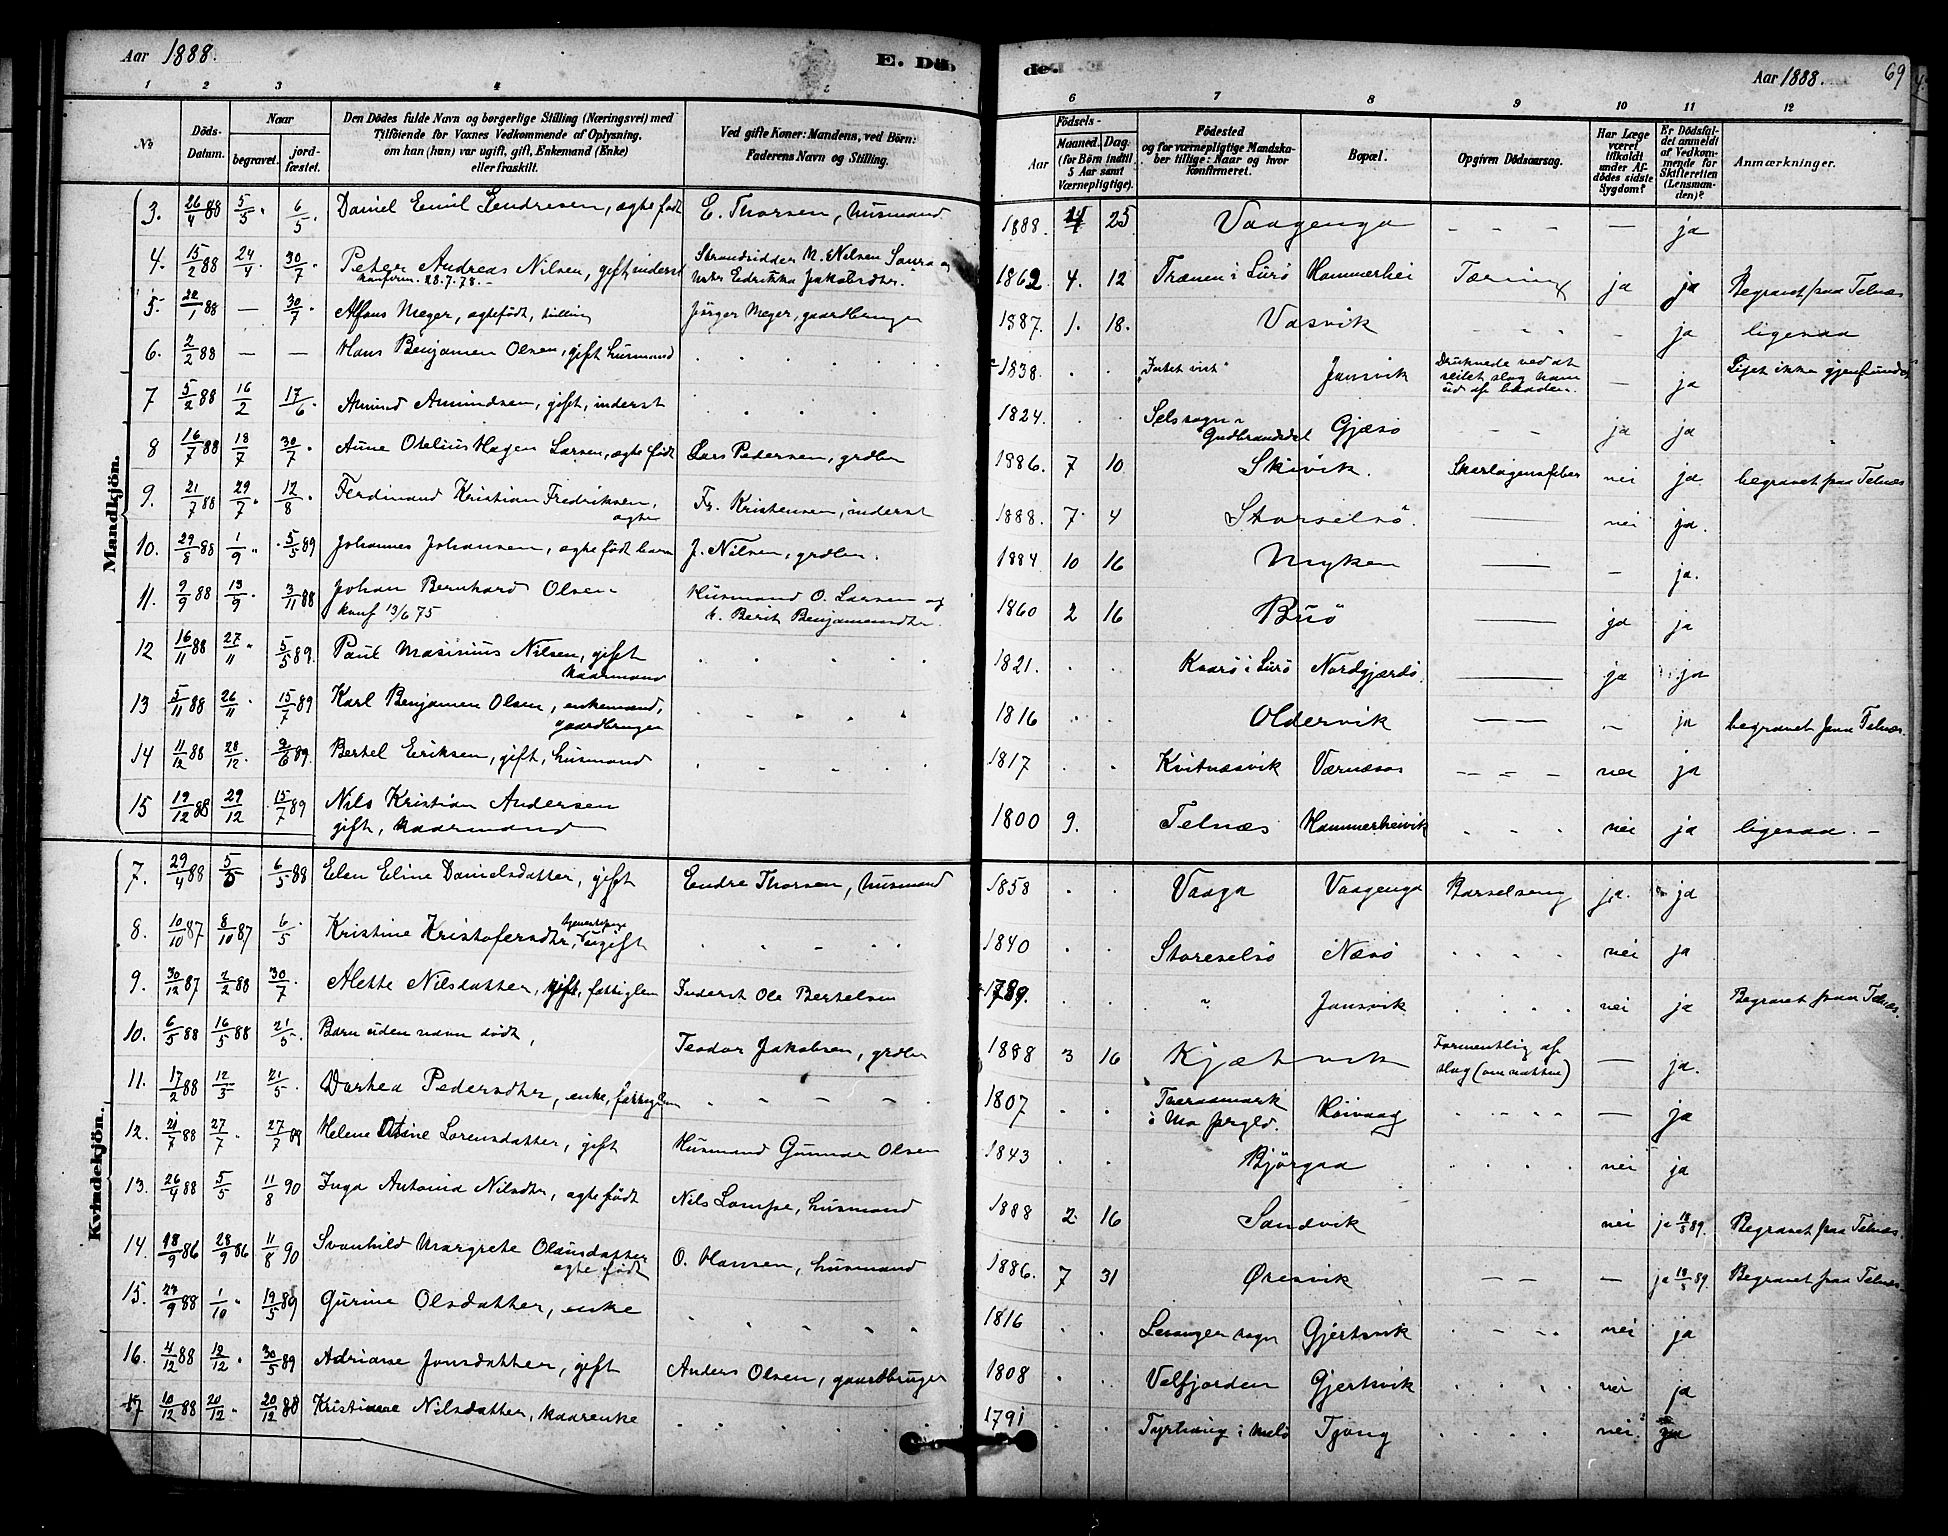 Aar 1888.
E. Dö
de.
Aar 1888.
69
1 2 3 4 5 6 7 8 9 10 11 12
No
Döds-Datum.
Naar
begravet.
jord-fæstet.
Den Dödes fulde Navn og borgerlige Stilling (Næringsvei) med
Tilföiende for Voxnes Vedkommende af Oplysning.
om han (hun) var ugift, gift, Enkemand (Enke)
eller fraskilt.
Ved gifte Koner: Mandens, ved Börn:
Faderens Navn og Stilling.
Födsels-
Aar
Maaned. Dag.
(for Börn indtil
5 Aar samt
Værnepligtige).
Födested
og for værnepligtige Mandska-
ber tillige: Naar og hvor
konfirmeret.
Bopæl.
Opgiven Dödsaarsag.
Har Læge
været
tilkaldt
under Af-
dödes sidste
Sygdom?
Er Dödsfal-
det anmeldt
af Vedkom-
mende for
Skifteretten
(Lensman-
den)?
Anmærkninger.
Mandkjön.
3. 26/4 88 5/5 " 6/5. Daniel Emil Endresen, ægtefødt E. Thorsen, husmand 1888. 4 25 Vaagenga – – – – — ja
4. 15/2 88 24/4. 30/7. Peter Andreas Nilsen, gift inderst Strandsidder M. Nilsen Sanra og 1862 4. 12 Trænen i Lurö Hammerhei Tæring ja ja Begravet paa Telnæs
konfirm. 28.7.78. – Edrikka Jakobsdtr.
5. 22/1 88 — 30/7 Alfons Meyer, ægtefødt, tvilling Jörger Meyer, gaardbruger 1887. 1. 18. Vasvik " " " – ja ligesaa
6. 2/2 88 — — Hans Benjamen Olsen, gift husmand . . . . 1838. . . "Intet vist" Jansvik Druknede ved at — ja Liget ikke gjenfundet
seilet slog ham
ud af baaden.
7 5/2 88 16/2 17/6. Amund Amundsen, gift, inderst . . . . 1824. . . Selssogn i ja ja
Gudbrandsdal Gjæsö – – –
8 16/7 88 18/7 30/7. Aune Otelius Hagen Larsen, ægtefødt Lars Pedersen, grdbr 1886. 7 10 Skivik. Skarlagensfeber nei ja begravet paa Telnæs
9. 21/7 88 29/7 " 12/8 " Ferdinand Kristian Fredriksen, Fr. Kristensen, inderst 1888. 7 4 Storselsö. — nei ja.
ægte
10. 29/8 88 1/9 " 5/5 89 Johannes Johansen, ægtefødt barn J. Nilsen, grdbr. 1884 10 16 Myken — – ja.
11. 9/9 88 13/9 " 3/11 88 Johan Bernhard Olsen Husmand O. Larsen og 1860 2 16 Buö — ja ja
konf 13/6 75 h. Berit Benjamensdtr.
12 16/11 88 27/11 " 5/5 89. Paul Masinius Nilsen, gift . . . . 1821. . . Kvarö i Lurö Nordgjærdö. — ja ja
kaarmand
13 5/11 88 26/11 " 15/7 89 Karl Benjamen Olsen, enkemand, . . . . 1816 . . Oldervik — – ja begravet paa Telnæs.
gaardbruger
14 11/12 88 28/12. 9/6 89. Bertel Eriksen, gift, husmand . . . . 1817 . . Kvitnæsvik Værnæsos – – – nei ja
15 19/12 88 29/12 15/7 89 Nils Kristian Andersen 1800 9. Telnæs Hammerheivik . . . nei ja ligesaa. –
gift, kaarmand
Kvindekjön.
7. 29/4 88 5/5 6/5 88 Elen Eline Danielsdatter, gift Endre Thorsen, husmand 1858 . . Vaaga Vaagenga Barselseng ja. ja
8. 10/10 87 8/10 87 6/5 Kristine Kristofersdtr, ugift . . – . . 1840 . . Storeselsö Næsö . . . . nei ja
9. 30/12 87 2/2 88 30/7 Alette Nilsdatter, gift, fattiglem Inderst Ole Bertelsen 1789. . . " Jansvik . . . . nei ja Begravet paa Telnæs.
10. 6/5 88 16/5 88 21/5. Barn uden navn dødt, Teodor Jakobsen, grdbr 1888 3 16 Kjætvik Formentlig af — ja.
slag (om natten)
11. 17/2 88 12/3 21/5 Dorthea Pedersdtr, enke, fattiglem . . – – – 1807 . . — ja
i Mo prgld. Höivaag . . . .
12. 21/7 88 27/7. 27/7 89 Helene Otine Lorensdatter, gift Husmand Gunder Olsen 1843 . . Bjørgaa . . . . nei ja
13. 26/4 88 5/5 11/8 90 Inga Antonia Nilsdtr, ægtefødt Nils Lampe, husmand 1888 2. 16 Sandvik nei ja 18/5 89. Begravet paa Telnæs.
14. 98/9 86 28/9 86 11/8 90 Svanhild Margrete Olausdatter O. Hansen, husmand 1886. 7 31 Øresvik — — — ja 18/5 89. Begravet paa Telnæs
ægtefødt
15. 27/9 88 1/10 " 19/5 89 Gurine Olsdatter, enke . . . . 1816 . . Levanger sogn Gjertsvik . – – . nei ja
16. 4/12 88 12/12 " 30/5 89 Adriane Jonsdatter, gift Anders Olsen, gaardbruger 1808 . . Velfjorden Gjertsvik . . . . nei ja
17 10/12 88 20/12 " 20/12 88 Kristiane Nilsdatter, kaarenke . . . . 1791 . . i Melö Tjong . . . . nei ja